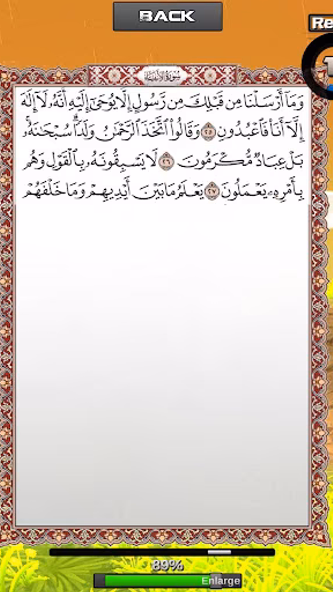 BACK
Re
سورة الأنبياء
وَمَآ أَرْسَلْنَا مِن قَبْلِكَ مِن رَّسُولٍ إِلَّا يُوحَىٰٓ إِلَيْهِ أَنَّهُۥ لَآ إِلَٰهَ
إِلَّآ أَنَا۠ فَٱعْبُدُونِ ٢٥ وَقَالُوا۟ ٱتَّخَذَ ٱلرَّحْمَٰنُ وَلَدًا سُبْحَٰنَهُۥ
بَلْ عِبَادٌ مُّكْرَمُونَ ٢٦ لَا يَسْبِقُونَهُۥ بِٱلْقَوْلِ وَهُم
بِأَمْرِهِۦ يَعْمَلُونَ ٢٧ يَعْلَمُ مَا بَيْنَ أَيْدِيهِمْ وَمَا خَلْفَهُمْ
89%
Enlarge